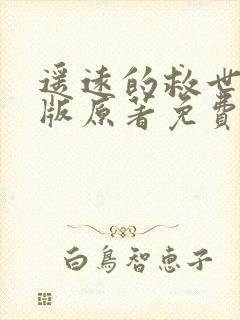 遥远的救世
版原著免费
白鳥智恵子